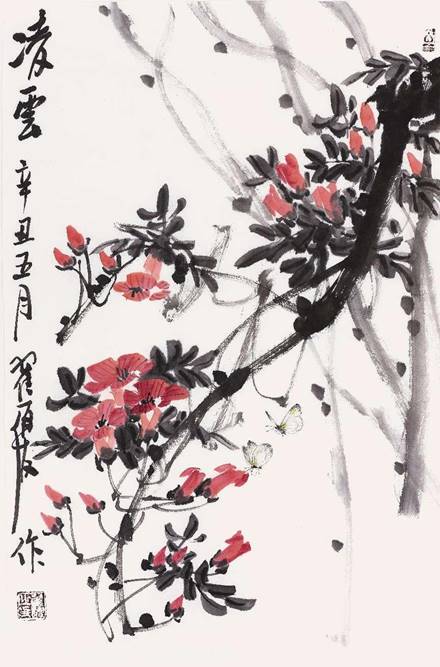 凌雲 辛丑五月 翟 作